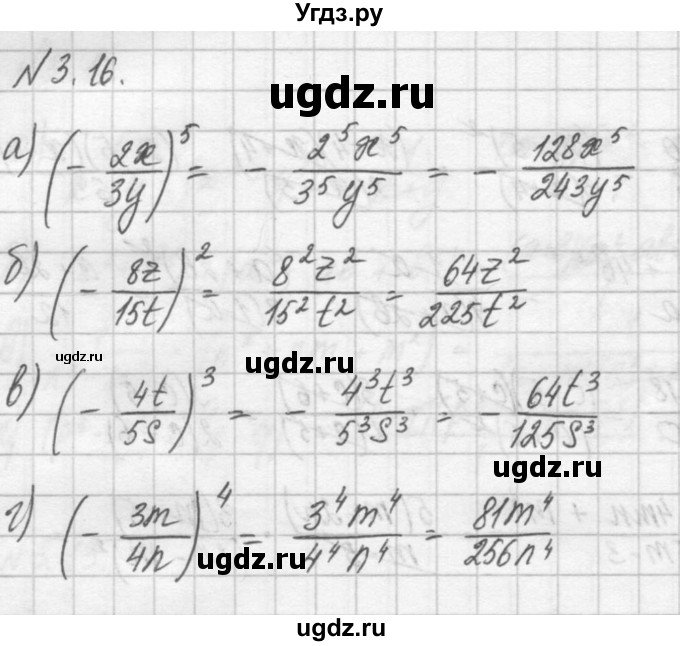 Угдз.ру
N 3.16.
ugdz.ru
а) (- 2x/3y)^5 = - 2^5 x^5/3^5 y^5 = - 128x^5/243y^5
б) (- 8z/15t)^2 = 8^2 z^2/15^2 t^2 = 64z^2/225t^2
ugdz.ru
ugdz.ru
в) (- 4t/5s)^3 = - 4^3 t^3/5^3 s^3 = - 64t^3/125s^3
ugdz.ru
г) (- 3m/4n)^4 = 3^4 m^4/4^4 n^4 = 81m^4/256n^4
ugdz.ru
ugdz.ru